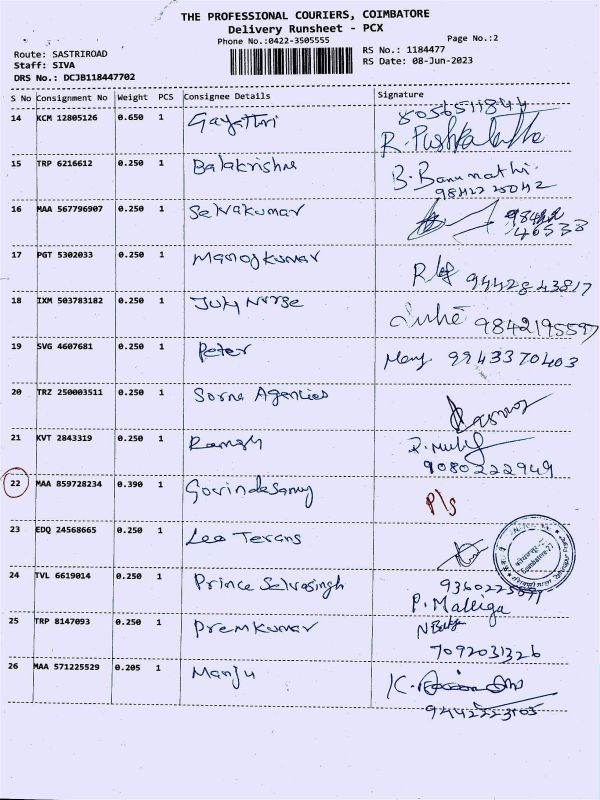 THE PROFESSIONAL COURIERS, COIMBATORE
Delivery Runsheet - PCX
Phone No.:0422-3505555
Page No.:2
Route: SASTRIROAD
RS No.: 1184477
Staff: SIVA
RS Date: 08-Jun-2023
DRS No.: DCJB118447702
S No Consignment No Weight PCS Consignee Details Signature
14 KCM 12805126 0.650 1 Gayathri 8056511844
R.
15 TRP 6216612 0.250 1 Balakrishna B. Banumathi
16 MAA 567796907 0.250 1 Selvakumar
17 PGT 5302033 0.250 1 Manojkumar
9442843817
18 IXM 503783182 0.250 1 July Nurse
9842195597
19 SVG 4607681 0.250 1 Peter 9943370403
20 TRZ 250003511 0.250 1 Sorna Agencies
21 KVT 2843319 0.250 1 Ramesh
9080222949
22 MAA 859728234 0.390 1 Govindasamy P/s
23 EDQ 24568665 0.250 1 Leo Texans
24 TVL 6619014 0.250 1 Prince Selvasingh
P. Malliga
25 TRP 8147093 0.250 1 Premkumar
7092031326
26 MAA 571225529 0.205 1 Manju K.